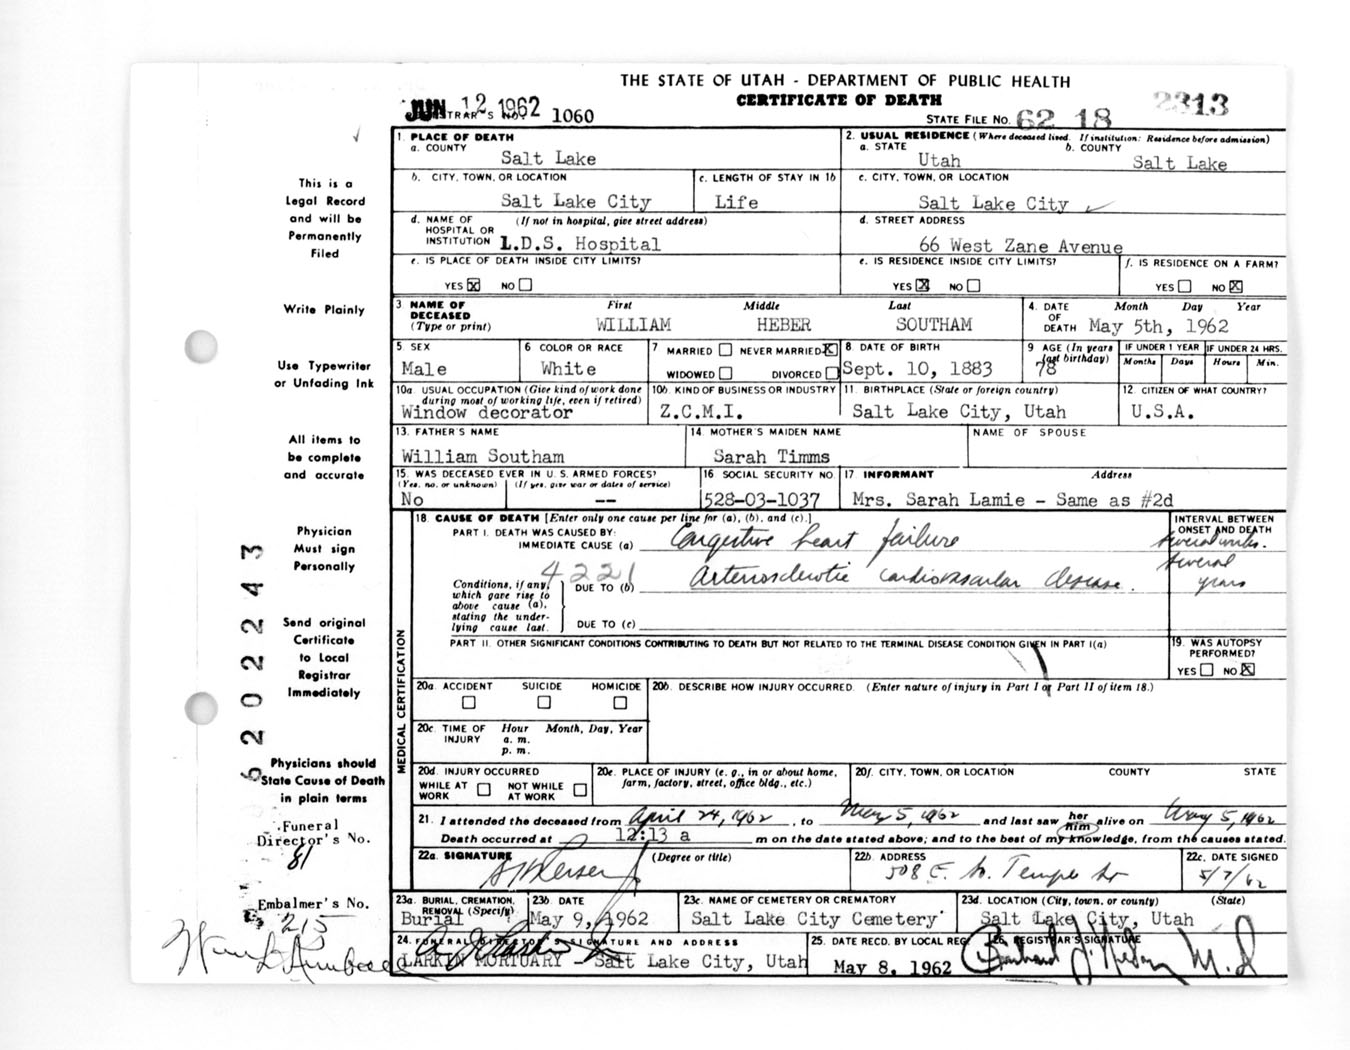 THE STATE OF UTAH - DEPARTMENT OF PUBLIC HEALTH
CERTIFICATE OF DEATH
2313
JUN 12 1962
1060
STATE FILE NO. 62 18
1. PLACE OF DEATH
a. COUNTY
Salt Lake
2. USUAL RESIDENCE (Where deceased lived. If institution: Residence before admission)
a. STATE
Utah
b. COUNTY
Salt Lake
b. CITY, TOWN, OR LOCATION
Salt Lake City
c. LENGTH OF STAY IN 1b
Life
c. CITY, TOWN, OR LOCATION
Salt Lake City
d. NAME OF HOSPITAL OR INSTITUTION
(If not in hospital, give street address)
L.D.S. Hospital
d. STREET ADDRESS
66 West Zane Avenue
e. IS PLACE OF DEATH INSIDE CITY LIMITS?
YES X NO
e. IS RESIDENCE INSIDE CITY LIMITS?
YES X NO
f. IS RESIDENCE ON A FARM?
YES NO X
3. NAME OF DECEASED
(Type or print)
First Middle Last
WILLIAM HEBER SOUTHAM
4. DATE OF DEATH
Month Day Year
May 5th, 1962
5. SEX
Male
6. COLOR OR RACE
White
7 MARRIED NEVER MARRIED X
WIDOWED DIVORCED
8 DATE OF BIRTH
Sept. 10, 1883
9 AGE (In years last birthday)
78
IF UNDER 1 YEAR
Months Days
IF UNDER 24 HRS.
Hours Min.
10a. USUAL OCCUPATION (Give kind of work done during most of working life, even if retired)
Window decorator
10b. KIND OF BUSINESS OR INDUSTRY
Z.C.M.I.
11. BIRTHPLACE (State or foreign country)
Salt Lake City, Utah
12. CITIZEN OF WHAT COUNTRY?
U.S.A.
13. FATHER'S NAME
William Southam
14 MOTHER'S MAIDEN NAME
Sarah Timms
NAME OF SPOUSE
15. WAS DECEASED EVER IN U. S. ARMED FORCES?
(Yes, no, or unknown) (If yes, give war or dates of service)
No --
16 SOCIAL SECURITY NO.
528-03-1037
17 INFORMANT Address
Mrs. Sarah Lamie - Same as #2d
MEDICAL CERTIFICATION
18. CAUSE OF DEATH [Enter only one cause per line for (a), (b), and (c).]
PART I. DEATH WAS CAUSED BY:
IMMEDIATE CAUSE (a)
Congestive heart failure
INTERVAL BETWEEN ONSET AND DEATH
several wks.
4221
Conditions, if any, which gave rise to above cause (a), stating the underlying cause last.
DUE TO (b)
Arteriosclerotic cardiovascular disease.
several years
DUE TO (c)
PART II. OTHER SIGNIFICANT CONDITIONS CONTRIBUTING TO DEATH BUT NOT RELATED TO THE TERMINAL DISEASE CONDITION GIVEN IN PART I(a)
19. WAS AUTOPSY PERFORMED?
YES NO X
20a. ACCIDENT SUICIDE HOMICIDE
20b. DESCRIBE HOW INJURY OCCURRED. (Enter nature of injury in Part I or Part II of item 18.)
20c. TIME OF INJURY
Hour Month, Day, Year
a. m.
p. m.
20d. INJURY OCCURRED
WHILE AT WORK
NOT WHILE AT WORK
20e. PLACE OF INJURY (e. g., in or about home, farm, factory, street, office bldg., etc.)
20f. CITY, TOWN, OR LOCATION COUNTY STATE
21. I attended the deceased from April 24, 1962, to May 5, 1962 and last saw her him alive on May 5, 1962
Death occurred at 12:13 a m on the date stated above; and to the best of my knowledge, from the causes stated.
22a. SIGNATURE
(Degree or title)
22b. ADDRESS
508 E. So. Temple St
22c. DATE SIGNED
5/7/62
23a. BURIAL, CREMATION, REMOVAL (Specify)
Burial
23b. DATE
May 9, 1962
23c. NAME OF CEMETERY OR CREMATORY
Salt Lake City Cemetery
23d. LOCATION (City, town, or county) (State)
Salt Lake City, Utah
24. FUNERAL DIRECTOR'S SIGNATURE AND ADDRESS
LARKIN MORTUARY - Salt Lake City, Utah
25. DATE RECD. BY LOCAL REG.
May 8, 1962
26. REGISTRAR'S SIGNATURE
M.D
This is a
Legal Record
and will be
Permanently
Filed
Write Plainly
Use Typewriter
or Unfading Ink
All items to
be complete
and accurate
Physician
Must sign
Personally
Send original
Certificate
to Local
Registrar
Immediately
Physicians should
State Cause of Death
in plain terms
Funeral
Director's No.
81
Embalmer's No.
215
62022243